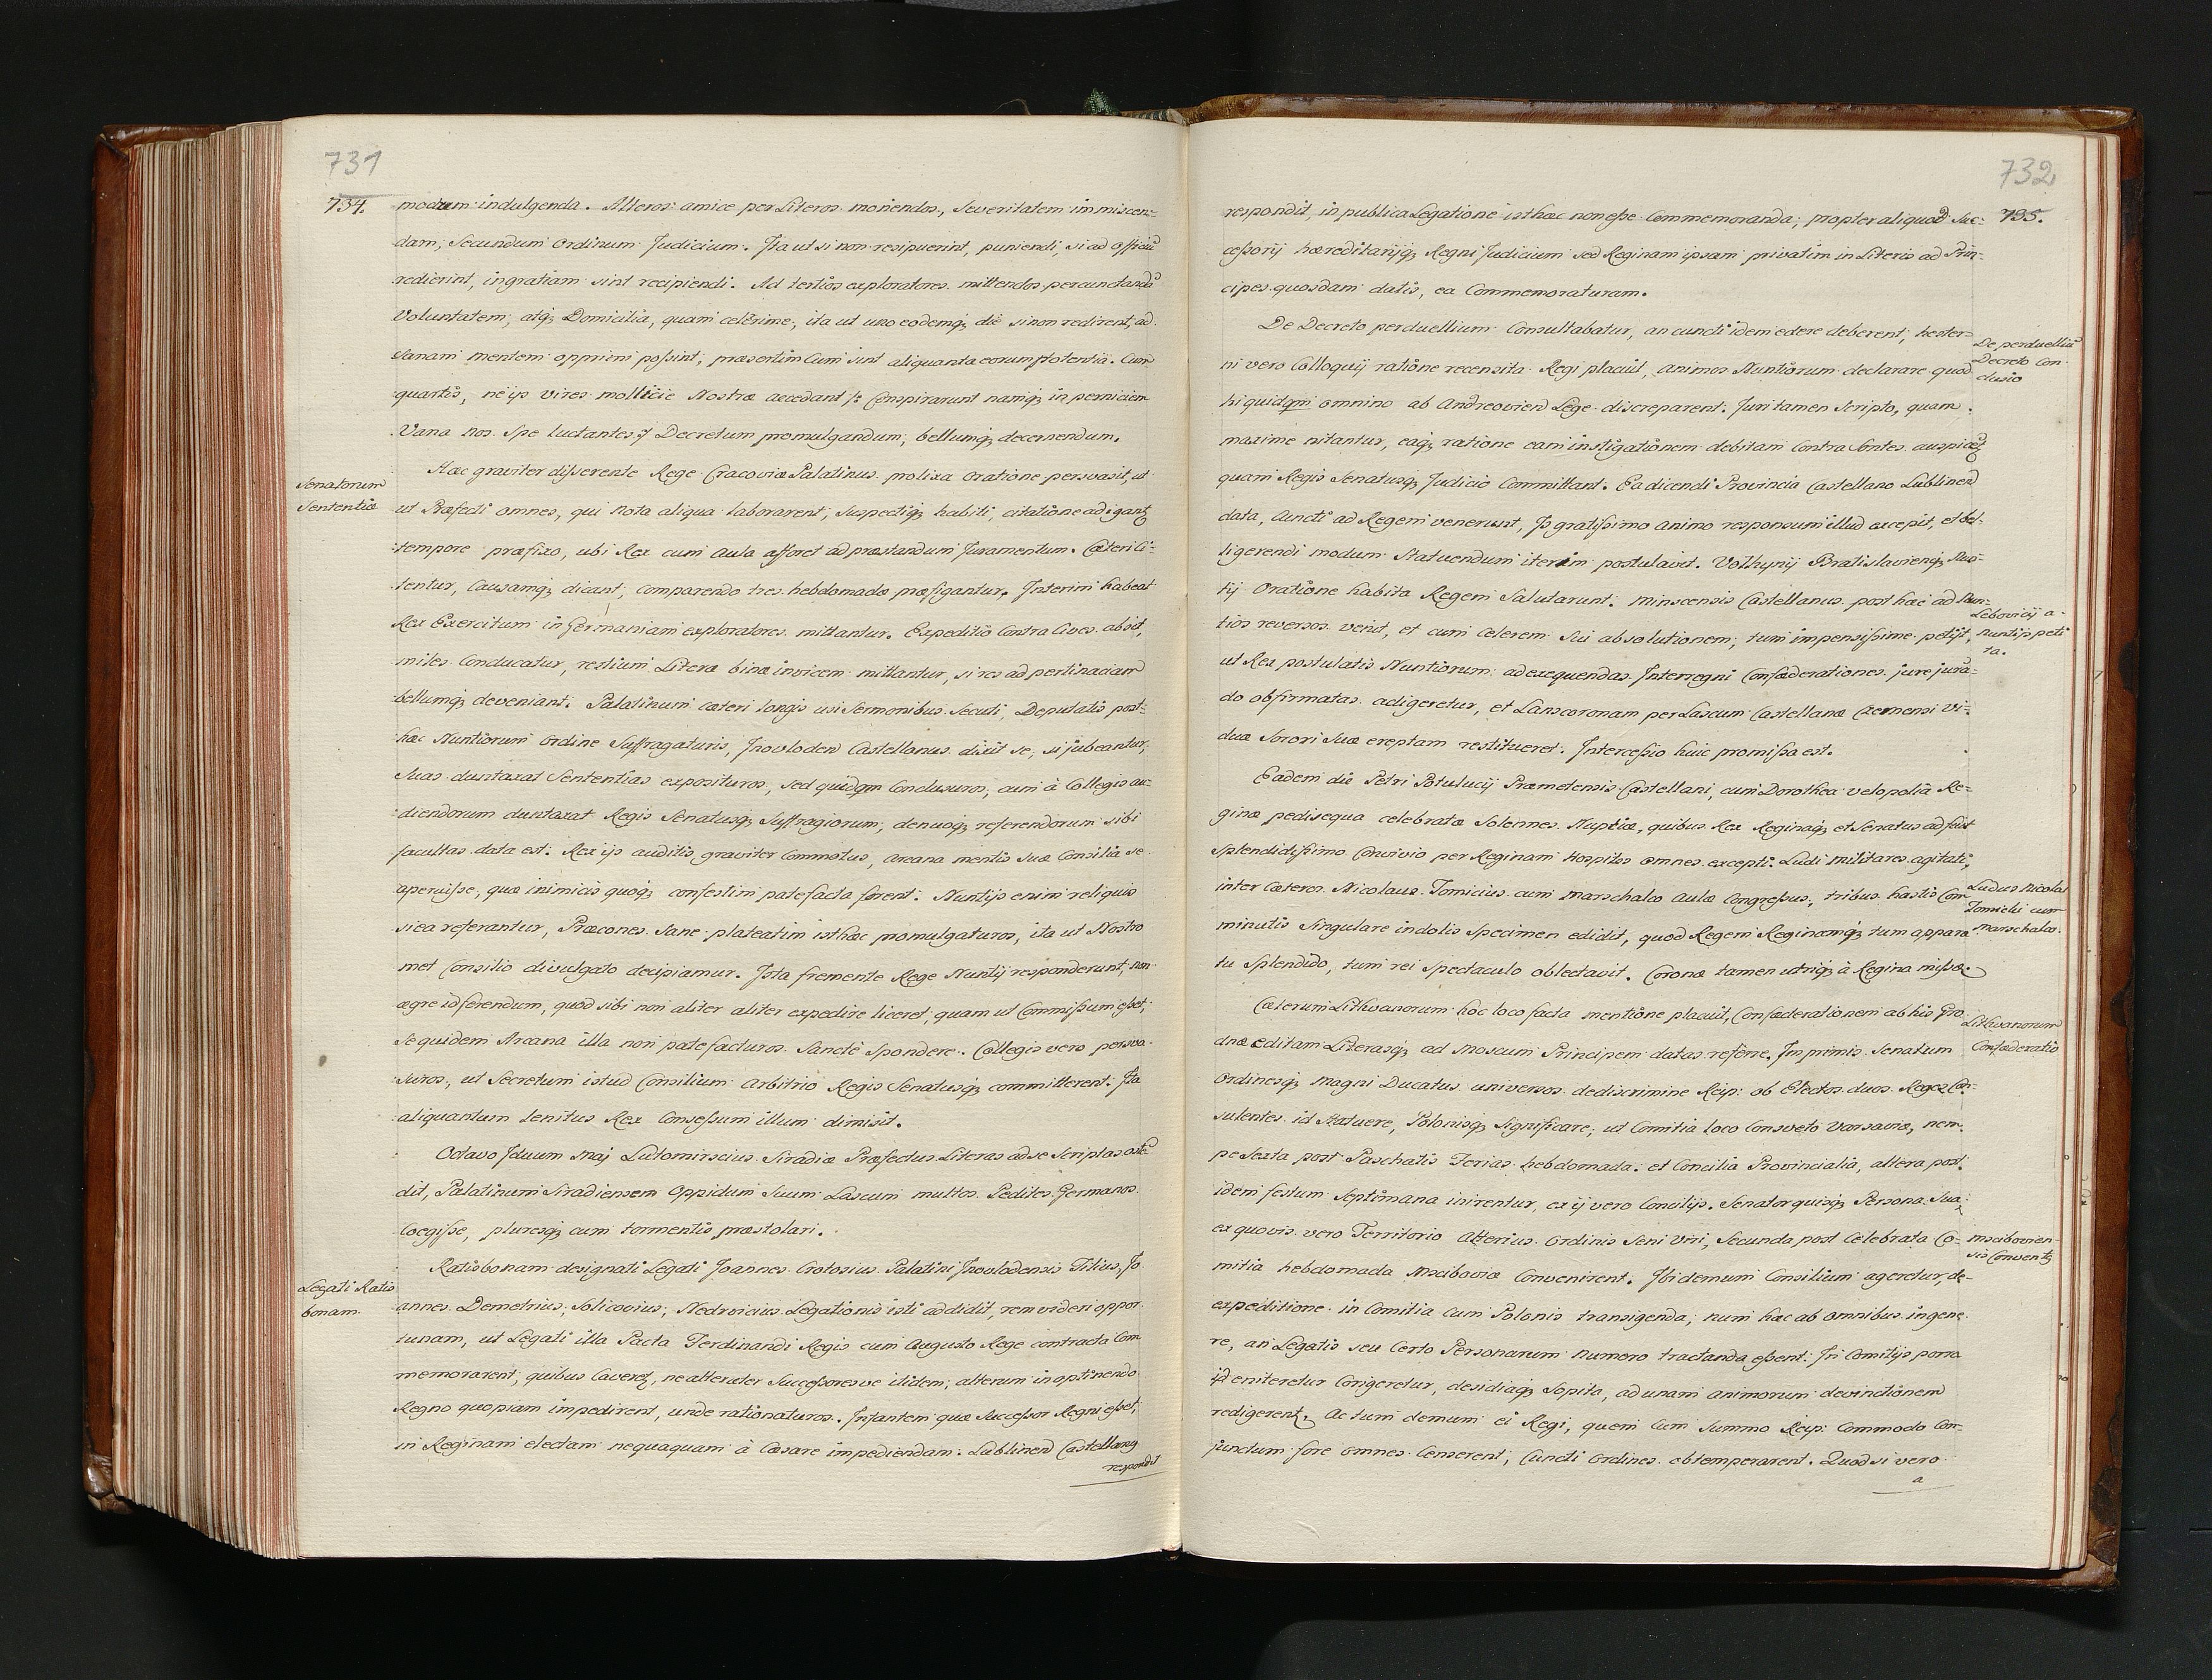 731
734.
modum indulgenda. Alteros amice per Literas monendos, Severitatem immiscen-
dam, Secundum Ordinum Judicium. Ita ut si non resipuerint, puniendi, si ad officiũ
redierint, in gratiam sint recipiendi. Ad tertios exploratores mittendos percunctandã
Voluntatem, atq; Domicilia, quam celerime, ita ut uno eodemq; die si non redirent, ad
Sanam mentem opprimi possint, præsertim Cum sint aliquanta eorum potentia. Cum
quartis, ne ijs vires mollicie Nostra accedant /: Conspirarunt namq; in perniciem
Vana nos Spe luctantes :/ Decretum promulgandum, bellumq; decernendum.
Senatorum
Sententiæ
Hæc graviter disserente Rege Cracoviæ Palatinus prolixa Oratione persvasit, ut
ut Præfecti omnes, qui Nota aliqua laborarent, Suspectiq; habiti, citatione adigant
tempore præfixo, ubi Rex cum Aula afforet ad præstandum Juramentum. Cæteri Ci-
tentur, Causamq; dicant, comparendo tres hebdomadæ præfigantur. Interim habeat
Rex Exercitum in Germaniam exploratores mittantur. Expeditio Contra Cives absit,
miles Conducatur, restium Literæ binæ invicem mittantur, si res ad pertinaciam
bellumq; deveniant. Palatinum cæteri longis usi Sermonibus Secuti, Deputatis post-
hæc Nuntiorum Ordine Suffragaturis, Inovloden Castellanus dixit se, si jubeantur,
Suas duntaxat Sententias exposituros, sed quidqm Conclusuros, cum à Collegis au-
diendorum duntaxat Regis Senatusq; Suffragiorum, denuoq; referendorum sibi
facultas data est. Rex ijs auditis graviter Commotus, Arcana mentis Suæ Consilia se
aperuisse, quæ inimicis quoq; confestim patefacta forent. Nuntijs enim reliquis
si ea referantur, Præcones Sane plateatim isthæc promulgaturos, ita ut Nostro
met Consilio divulgato decipiamur. Ista fremente Rege Nuntij responderunt, non
ægre id ferendum, quod sibi non aliter aliter expedire liceret, quam ut Commissum esset,
Se quidem Arcana illa non patefacturos Sanctè Spondere. Collegis vero persva-
suros, ut Secretum istud Consilium Arbitrio Regis Senatusq; committerent. Ita
aliquantum lenitus Rex Consessum illum dimisit.
Octavo Iduum Maj Lutomirscius Siradiæ Præfectus Literas ad se Scriptas ostẽ
dit, Palatinum Siradiensem Oppidum Suum Lascum multos Pedites Germanos
Coegisse, pluresq; cum tormentis præstolari.
Legati Ratis
bonam
Ratisbonam designati Legati Joannes Crotosius Palatini Inovlodensis Filius, Jo
annes Demetrius, Solicovius, Nedrvicius Legationis isti addidit, rem videri oppor
tunam, ut Legati illa Pacta Ferdinandi Regis cum Augusto Rege contracta Com
memorarent, quibus Caveret, ne alteruter Successoresve itidem, alterum in optinendo
Regno quopiam impedirent, unde rationaturos Infantem quæ Successor Regni esset,
in Reginam electam nequaquam à Cæsare impediendam. Lublinen Castellang
respondit
732
735.
respondit, in publica Legatione isthæc non esse Commemoranda, propter aliquod Suc-
cessorij hæreditarijq; Regni Judicium sed Reginam ipsam privatim in Literis ad Prin-
cipes quosdam datis, ea Commemoraturam.
De perduelliũ
Decreto Con
clusio
De Decreto perduellium Consultabatur, an cuncti idem edere deberent, hester-
ni vero Colloquij ratione recensita Regi placuit, animos Nuntiorum declarare quod
hi quidqm omnino ab Andreovien Lege discreparent. Juri tamen Scripto, quam
maxime nitantur, eaq; ratione eam instigationem debitam Contra Sontes auspicet
quam Regis Senatusq; Judicio Committant. Ea dicendi Provincia Castellano Lublinen
data, Cuncti ad Regem venerunt, Is gratissimo animo responsum illud excepit, et bel-
ligerendi modum Statuendum iterum postulavit. Volhynij Bratislavienq; Nun-
tij Oratione habita Regem Salutarunt. Minscensis Castellanus post hæc ad Nun-
Lebovicij a
Nuntijs peti
ta.
tios reversos venit, et cum Celerem Sui absolutionem, tum impensissime petijt,
ut Rex postulatis Nuntiorum ad exequendas Interregni Confæderationes jure jurã-
do obfirmatas adigeretur, et Lanscoronam per Lascum Castellanæ Czernensi vi-
duæ Sorori Suæ ereptam restitueret. Intercessio huic promissa est.
Eadem die Petri Potulucij Præmetensis Castellani, cum Dorothea velopolia Re-
ginæ pedisequa celebratæ Solennes Nuptiæ, quibus Rex Reginaq; et Senatus adfuit
Splendidissimo Convivio per Reginam Hospites omnes excepti. Ludi militares agitati,
Ludus Nicolai
Tomicki cum
Marschalco.
inter Cæteros Nicolaus Tomicius cum Marschalco Aulæ Congressus, tribus hastis Com
minutis Singulare indolis Specimen edidit, quod Regem Reginamq; tum appara
tu Splendido, tum rei Spectaculo oblectavit. Coronæ tamen utriq; à Regina missæ.
Lithvanorum
Confæderatio
Cæterum Lithvanorum hoc loco facta mentione placuit, Confæderationem ab his Gro
dnæ editam Literasq; ad Moscum Principem datas referre. Imprimis Senatum
Ordinesq; Magni Ducatus universos de discrimine Reip: ob Electos duos Reges Con-
sulentes id Statuere, Polonisq; Significare, ut Comitia loco Consveto Varsaviæ, nem-
pe Sexta post Paschatis Ferias hebdomada: et Concilia Provincialia, altera post
idem festum Septimana inirentur, ex ij vero Concilijs. Senator quisq; Persona Sua,
Mscibovien-
sis Convent
ex quovis vero Territorio Alterius Ordinis Seni Viri, Secunda post Celebrata Co-
mitia hebdomada Mscibowiæ Convenirent. Ibi demum Consilium ageretur, de
expeditione in Comitia Cum Polonis transigenda, num hæc ab omnibus in gene
re, an Legatis seu Certo Personarum Numero tractanda essent. In Comitijs porra
id eniteretur Congeretur, desidiaq; Sopita, ad unam animorum devinctionem
redigerent, Ac tum demum ei Regi, quem Cum Summo Reip: Commodo Con-
junctum fore omnes Censerent, Cuncti Ordines obtemperarent. Quod si vero
a